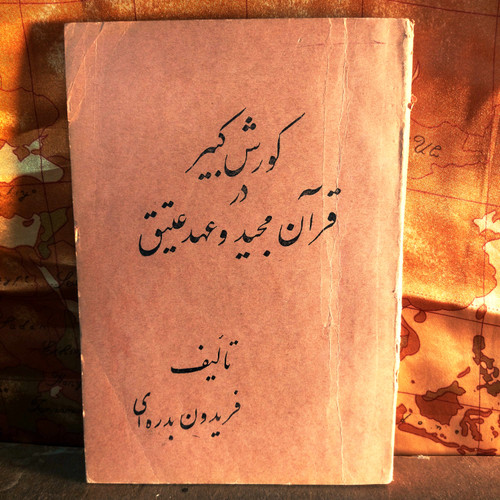 کورش کبیر
در
قرآن مجید و عهد عتیق
تألیف
فریدون بدره‌ای